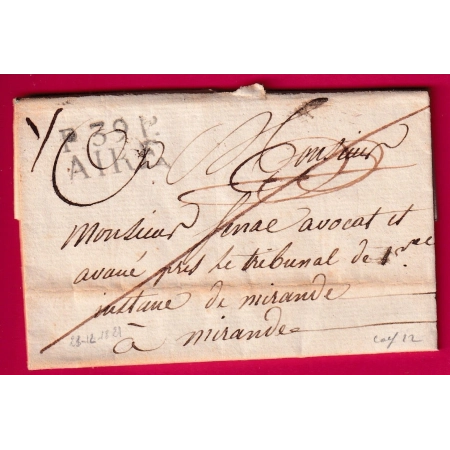 P.39.P.
AIRE
Monsieur
Monsieur Senac avocat et
avoué près le tribunal de 1ere
instance de mirande
à mirande
28-12-1821